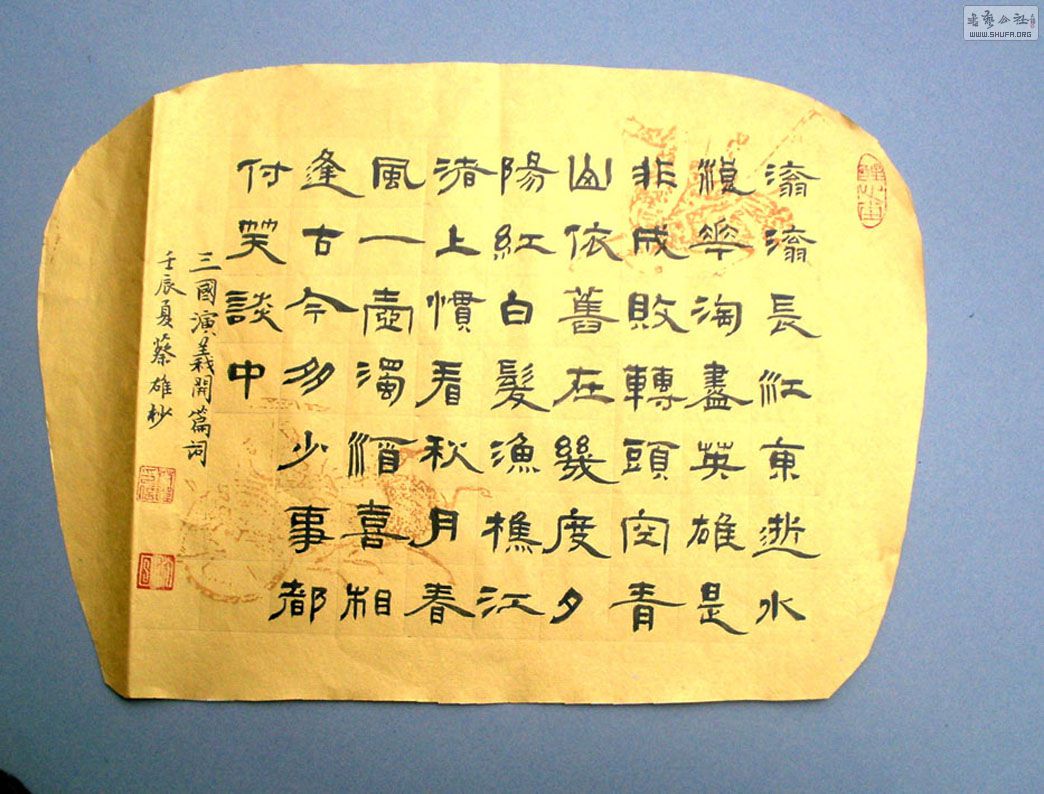 滾滾長江東逝水
浪華淘盡英雄是
非成敗轉頭空青
山依舊在幾度夕
陽紅白髮漁樵江
渚上慣看秋月春
風一壺濁酒喜相
逢古今多少事都
付笑談中
三國演義開篇詞
壬辰夏蔡雄抄
書藝公社
WWW.SHUFA.ORG